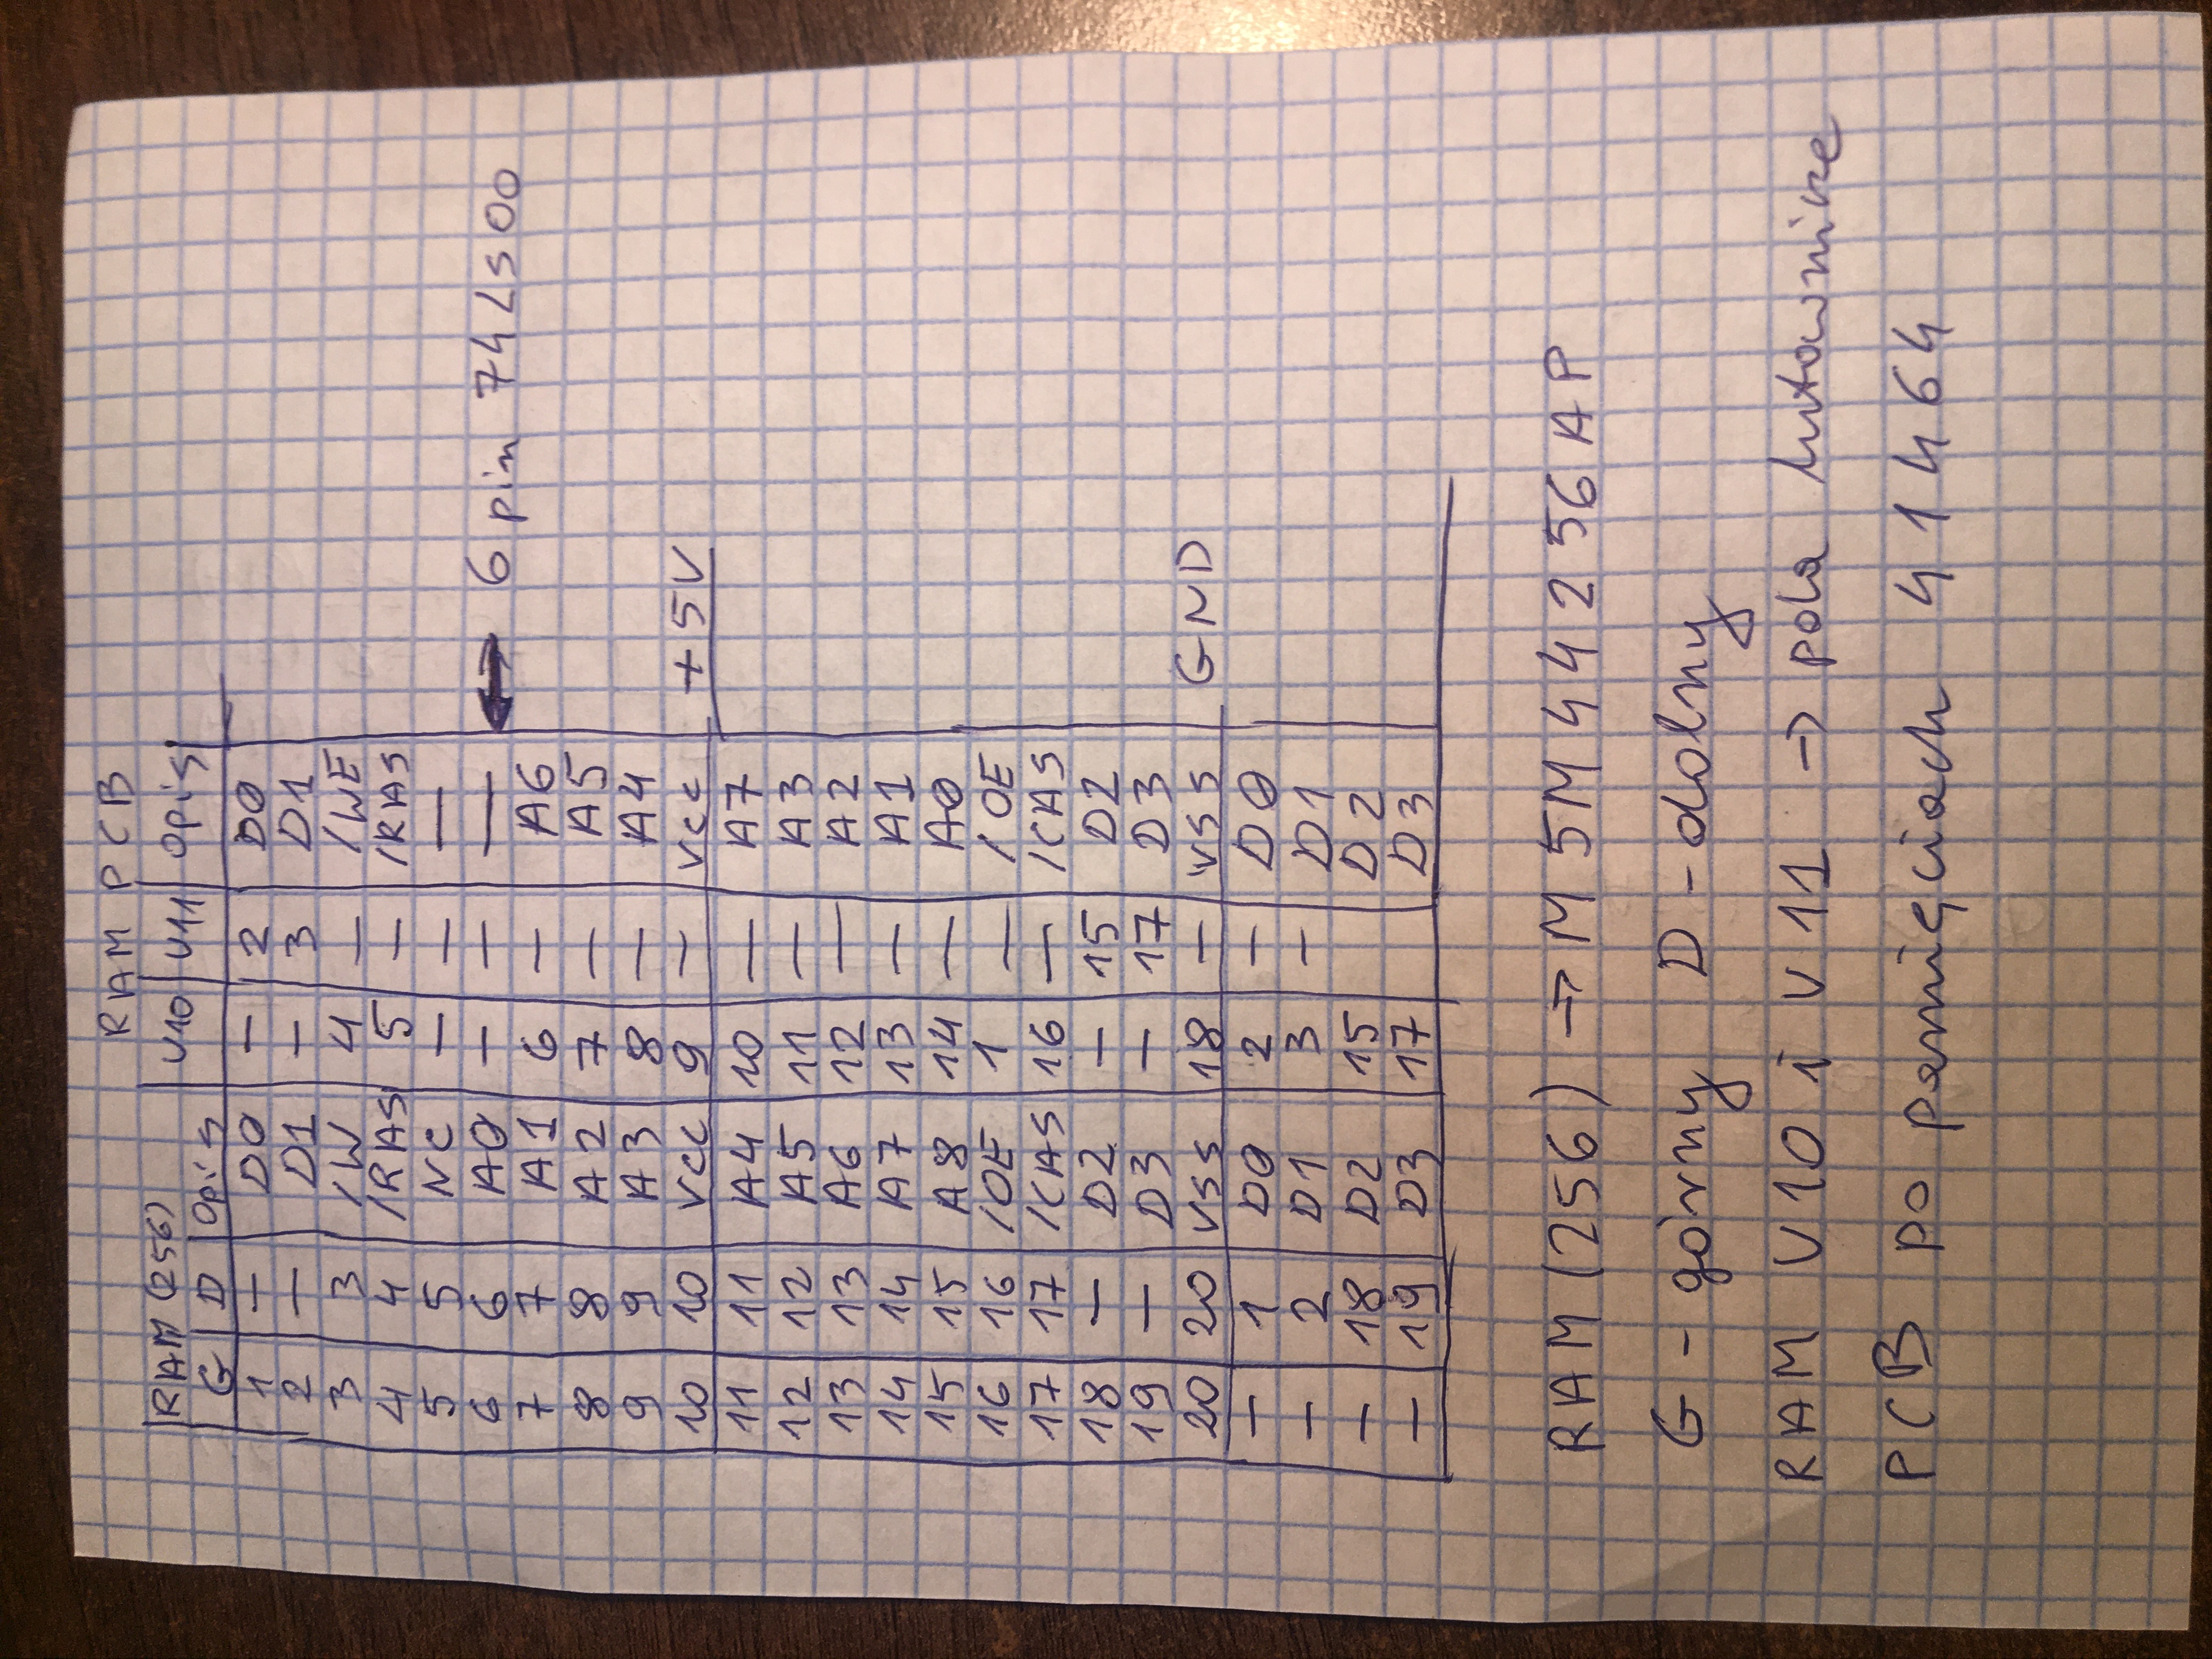 RAM (256) RAM PCB
G D Opis U10 U11 Opis
1 — D0 — 2 D0
2 — D1 — 3 D1
3 3 /W 4 — /WE
4 4 /RAS 5 — /RAS
5 5 NC — — —
6 6 A0 — — — ← 6 pin 74LS00
7 7 A1 6 — A6
8 8 A2 7 — A5
9 9 A3 8 — A4
10 10 VCC 9 — Vcc +5V
11 11 A4 10 — A7
12 12 A5 11 — A3
13 13 A6 12 — A2
14 14 A7 13 — A1
15 15 A8 14 — A0
16 16 /OE 1 — /OE
17 17 /CAS 16 — /CAS
18 — D2 — 15 D2
19 — D3 — 17 D3
20 20 VSS 18 — VSS GND
— 1 D0 2 — D0
— 2 D1 3 — D1
— 18 D2 15 D2
— 19 D3 17 D3
RAM (256) → M5M44256AP
G - górny D - dolny
RAM U10 i U11 → pola lutownicze
PCB po pamięciach 41464